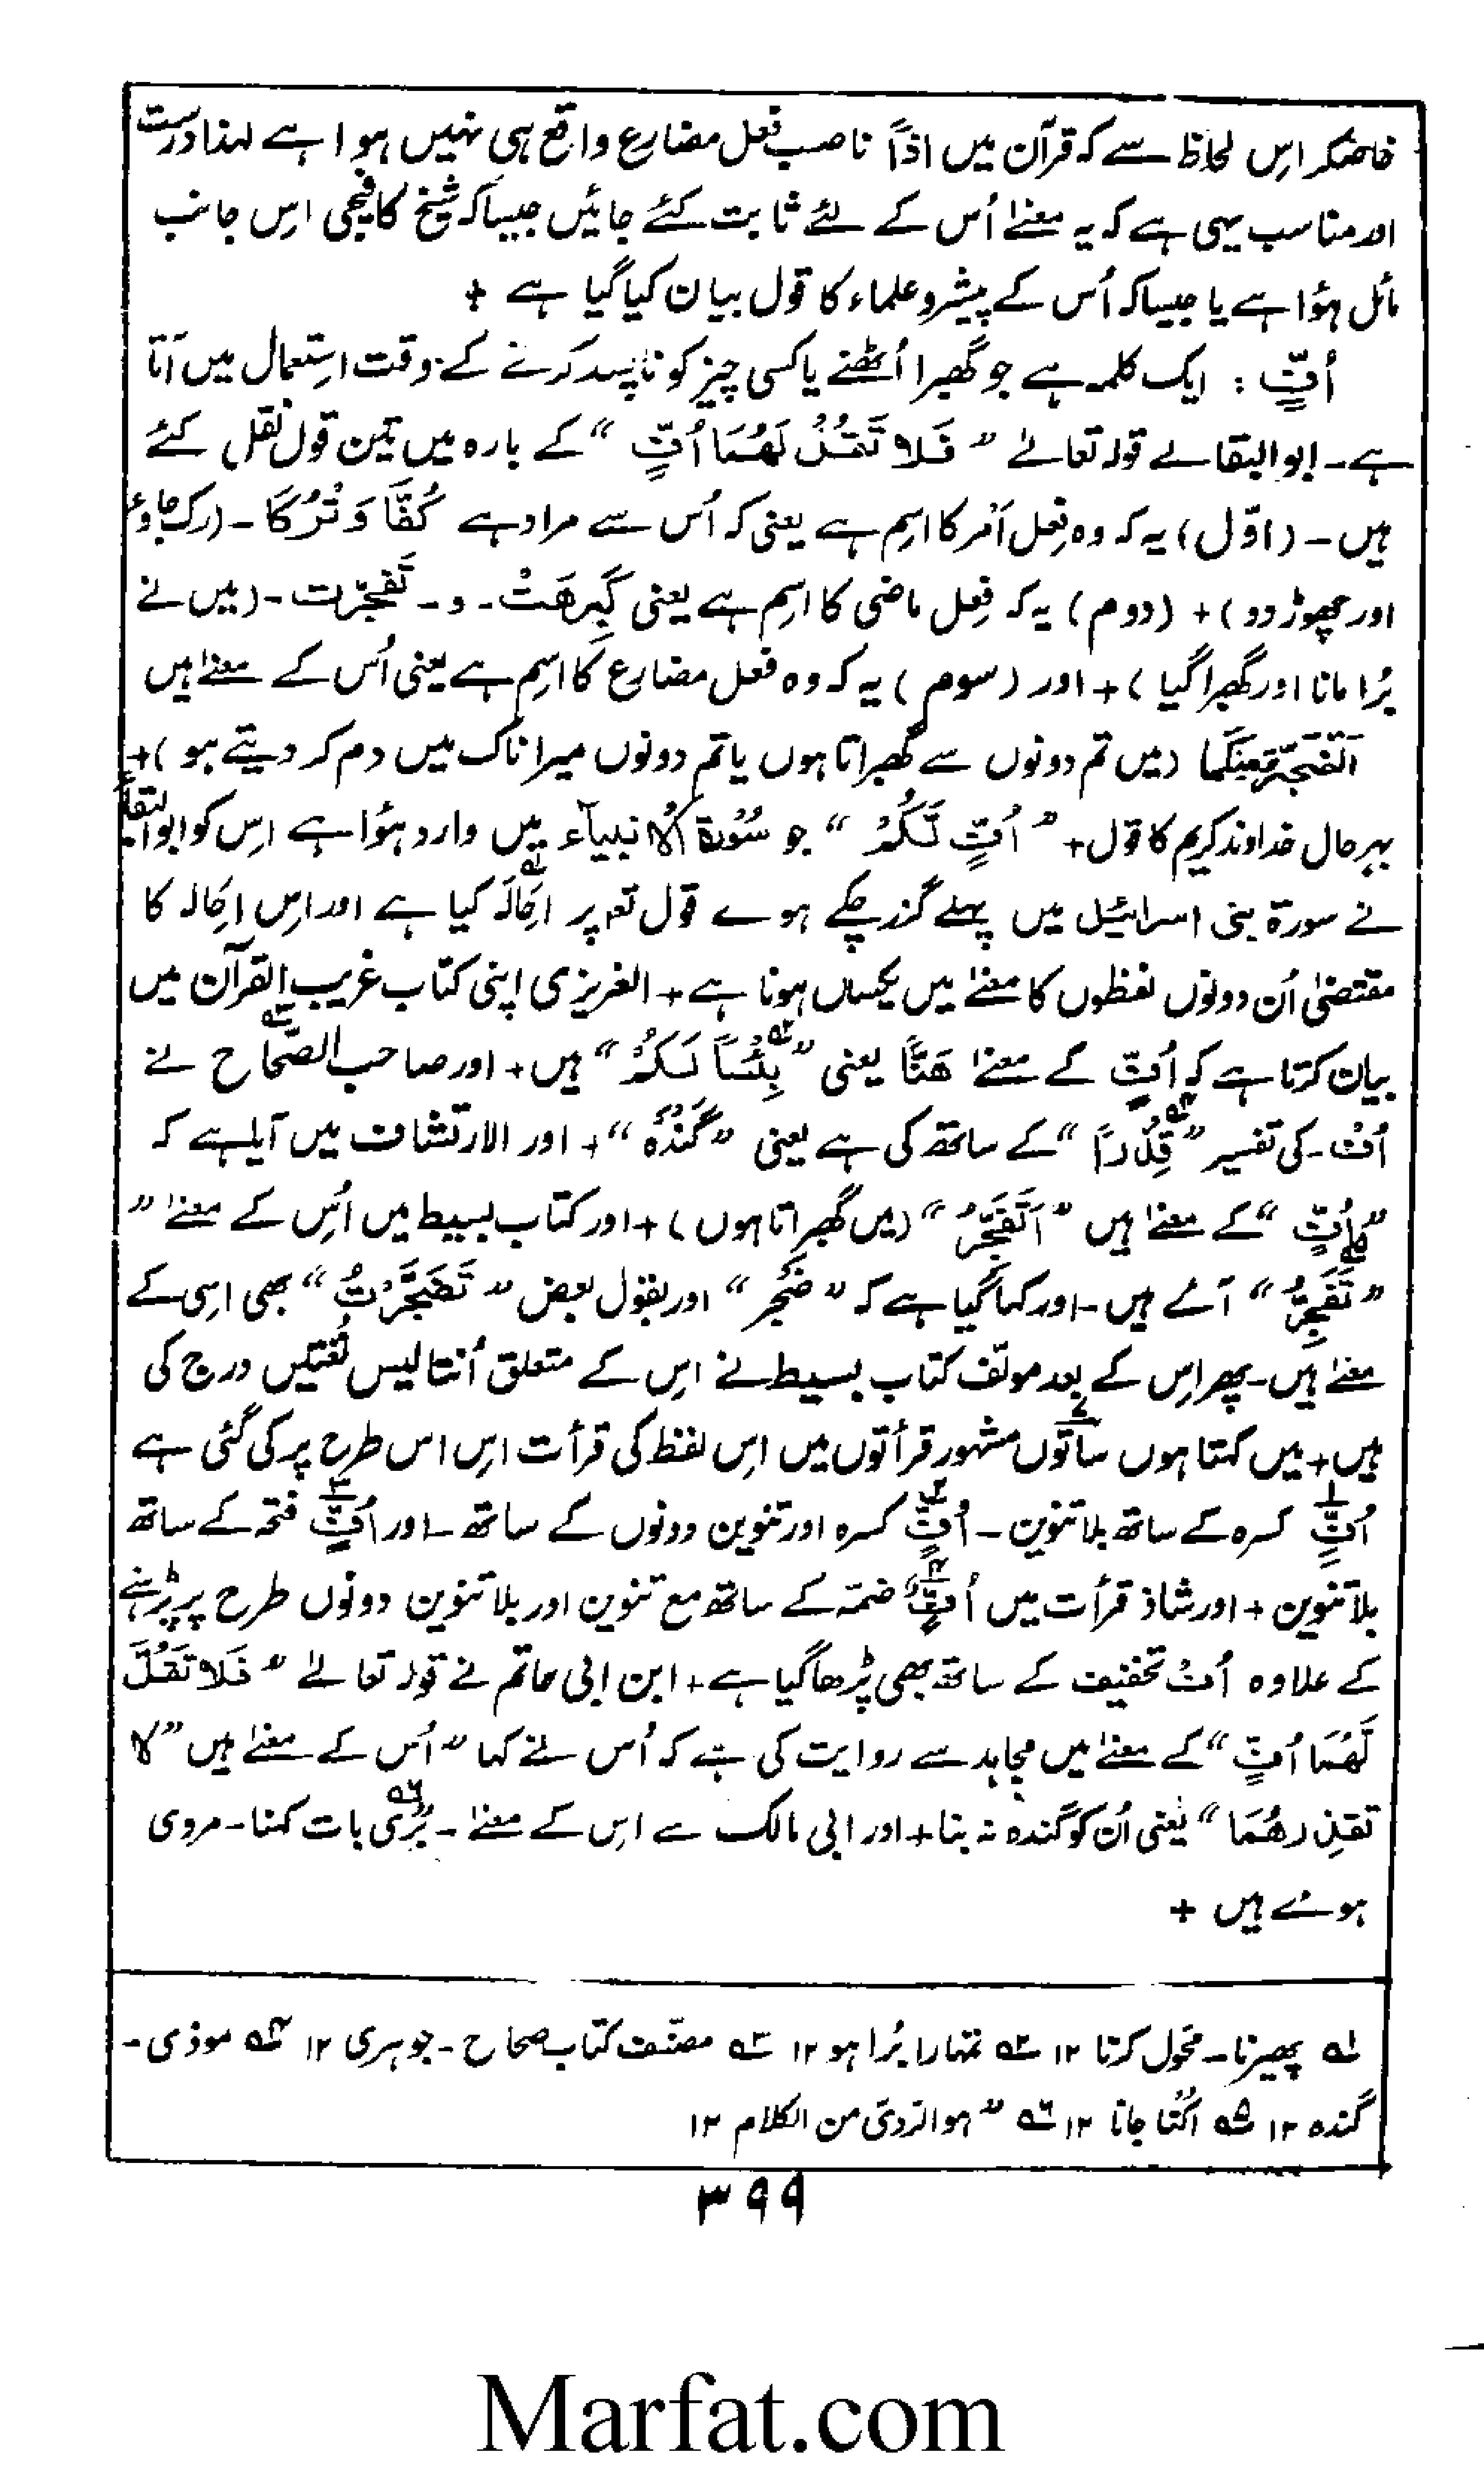 خاصکر اِس لحاظ سے کہ قرآن میں اذاً ناصب فعل مضارع واقع ہی نہیں ہوا ہے لہذا درست
اور مناسب یہی ہے کہ یہ معنےٰ اُس کے لئے ثابت کئے جائیں جیسا کہ شیخ کافیجی اِس جانب
مائل ہؤا ہے یا جیسا کہ اُس کے پیشرو علماء کا قول بیان کیا گیا ہے +
اُفٍّ : ایک کلمہ ہے جو گھبرا اُٹھنے یا کسی چیز کو ناپسند کرنے کے وقت استِعمال میں آتا
ہے ۔ ابو البقا نے قولہ تعالےٰ " فَلَا تَقُلْ لَهُمَا اُفٍّ " کے بارہ میں تین قول نقل کئے
ہیں ۔ (اوّل) یہ کہ وہ فِعل اَمر کا اسِم ہے یعنی کہ اُس سے مراد ہے كُفَّا وَ تْرُكَا ۔ (رک جاوٴ
اور چھوڑ دو) + (دوم) یہ کہ فِعل ماضی کا اسِم ہے یعنی كَرِهَتْ ۔ و ۔ تَضجّرت ۔ (میں نے
بُرا مانا اور گھبرا گیا) + اور (سوم) یہ کہ وہ فعل مضارع کا اسِم ہے یعنی اُس کے معنےٰ ہیں
اَتَضَجَّرُمِنكُما (میں تم دونوں سے گھبراتا ہوں یا تم دونوں میرا ناک میں دم کر دیتے ہو) +
بہرحال خداوند کریم کا قول + " اُفٍّ لَّكُمْ " جو سُوْرۃ الانبیآء میں وارد ہؤا ہے اسِ کو ابو البقا
نے سورۃ بنی اسرائیل میں پہلے گذر چکے ہوے قول تعہ پر احَالَہ کیا ہے اور اسِ احَالہ کا
مقتضیٰ اُن دونوں لفظوں کا معنےٰ میں یکساں ہونا ہے + العزیزی اپنی کتاب غریب القرآن میں
بیان کرتا ہے کہ اُفٍّ کے معنےٰ هَتًّا یعنی " بِئْسًا لَكُمْ " ہیں + اور صاحب الصّحَاح نے
اُفْ ۔ کی تفسیر " قِذْرًا " کے ساتھ کی ہے یعنی " گَنْدَہ " + اور الارتشاف میں آیا ہے کہ
" اُفٍّ " کے معنےٰ ہیں " اَتَضَجَّرُ " (میں گھبراتا ہوں) + اور کتاب بسیط میں اُس کے معنےٰ "
" تَضَجُّرٌ " آئے ہیں ۔ اور کہا گیا ہے کہ " ضَجْر " اور بقول بعض " تَضَجَّرْتُ " بھی اسِی کے
معنےٰ ہیں ۔ پھر اسِ کے بعد مولّف کتاب بسیط نے اسِ کے متعلق اُنتالیس لُغتیں درج کی
ہیں + میں کہتا ہوں ساتوں مشہور قرأتوں میں اسِ لفظ کی قرأت اسِ اس طرح پر کی گئی ہے
اُفِّ کسرہ کے ساتھ بلا تنوین ۔ اُفٍّ کسرہ اور تنوین دونوں کے ساتھ ۔ اور اُفَّ فتحہ کے ساتھ
بلا تنوین + اور شاذ قرأت میں اُفٌّ ضمّہ کے ساتھ مع تنوین اور بلا تنوین دونوں طرح پر پڑہنے
کے علاوہ اُفْ تخفیف کے ساتھ بھی پڑھا گیا ہے + ابن ابی حاتم نے قولہ تعالےٰ " فَلَا تَقُلْ
لَهُمَا اُفٍّ " کے معنےٰ میں مجاہد سے روایت کی ہے کہ اُس نے کہا " اُس کے معنےٰ ہیں " لا
تقذِرهُمَا " یعنی اُن کو گندہ نہ بنا + اور ابی مالک سے اسِ کے معنےٰ ۔ بُرّی بات کہنا ۔ مروی
ہوئے ہیں +
لہ پھیرنا ۔ محَوّل کرنا ١٢ ٢ہ تمہارا بُرا ہو ١٢ ٣ہ مصنّف کتاب صحاح ۔ جوہری ١٢ ٤ہ موذی ۔
گندہ ١٢ ٥ہ اُکتا جانا ١٢ ٦ہ " ہو الردیّ من الکلام ١٢
٣٩٩
Marfat.com